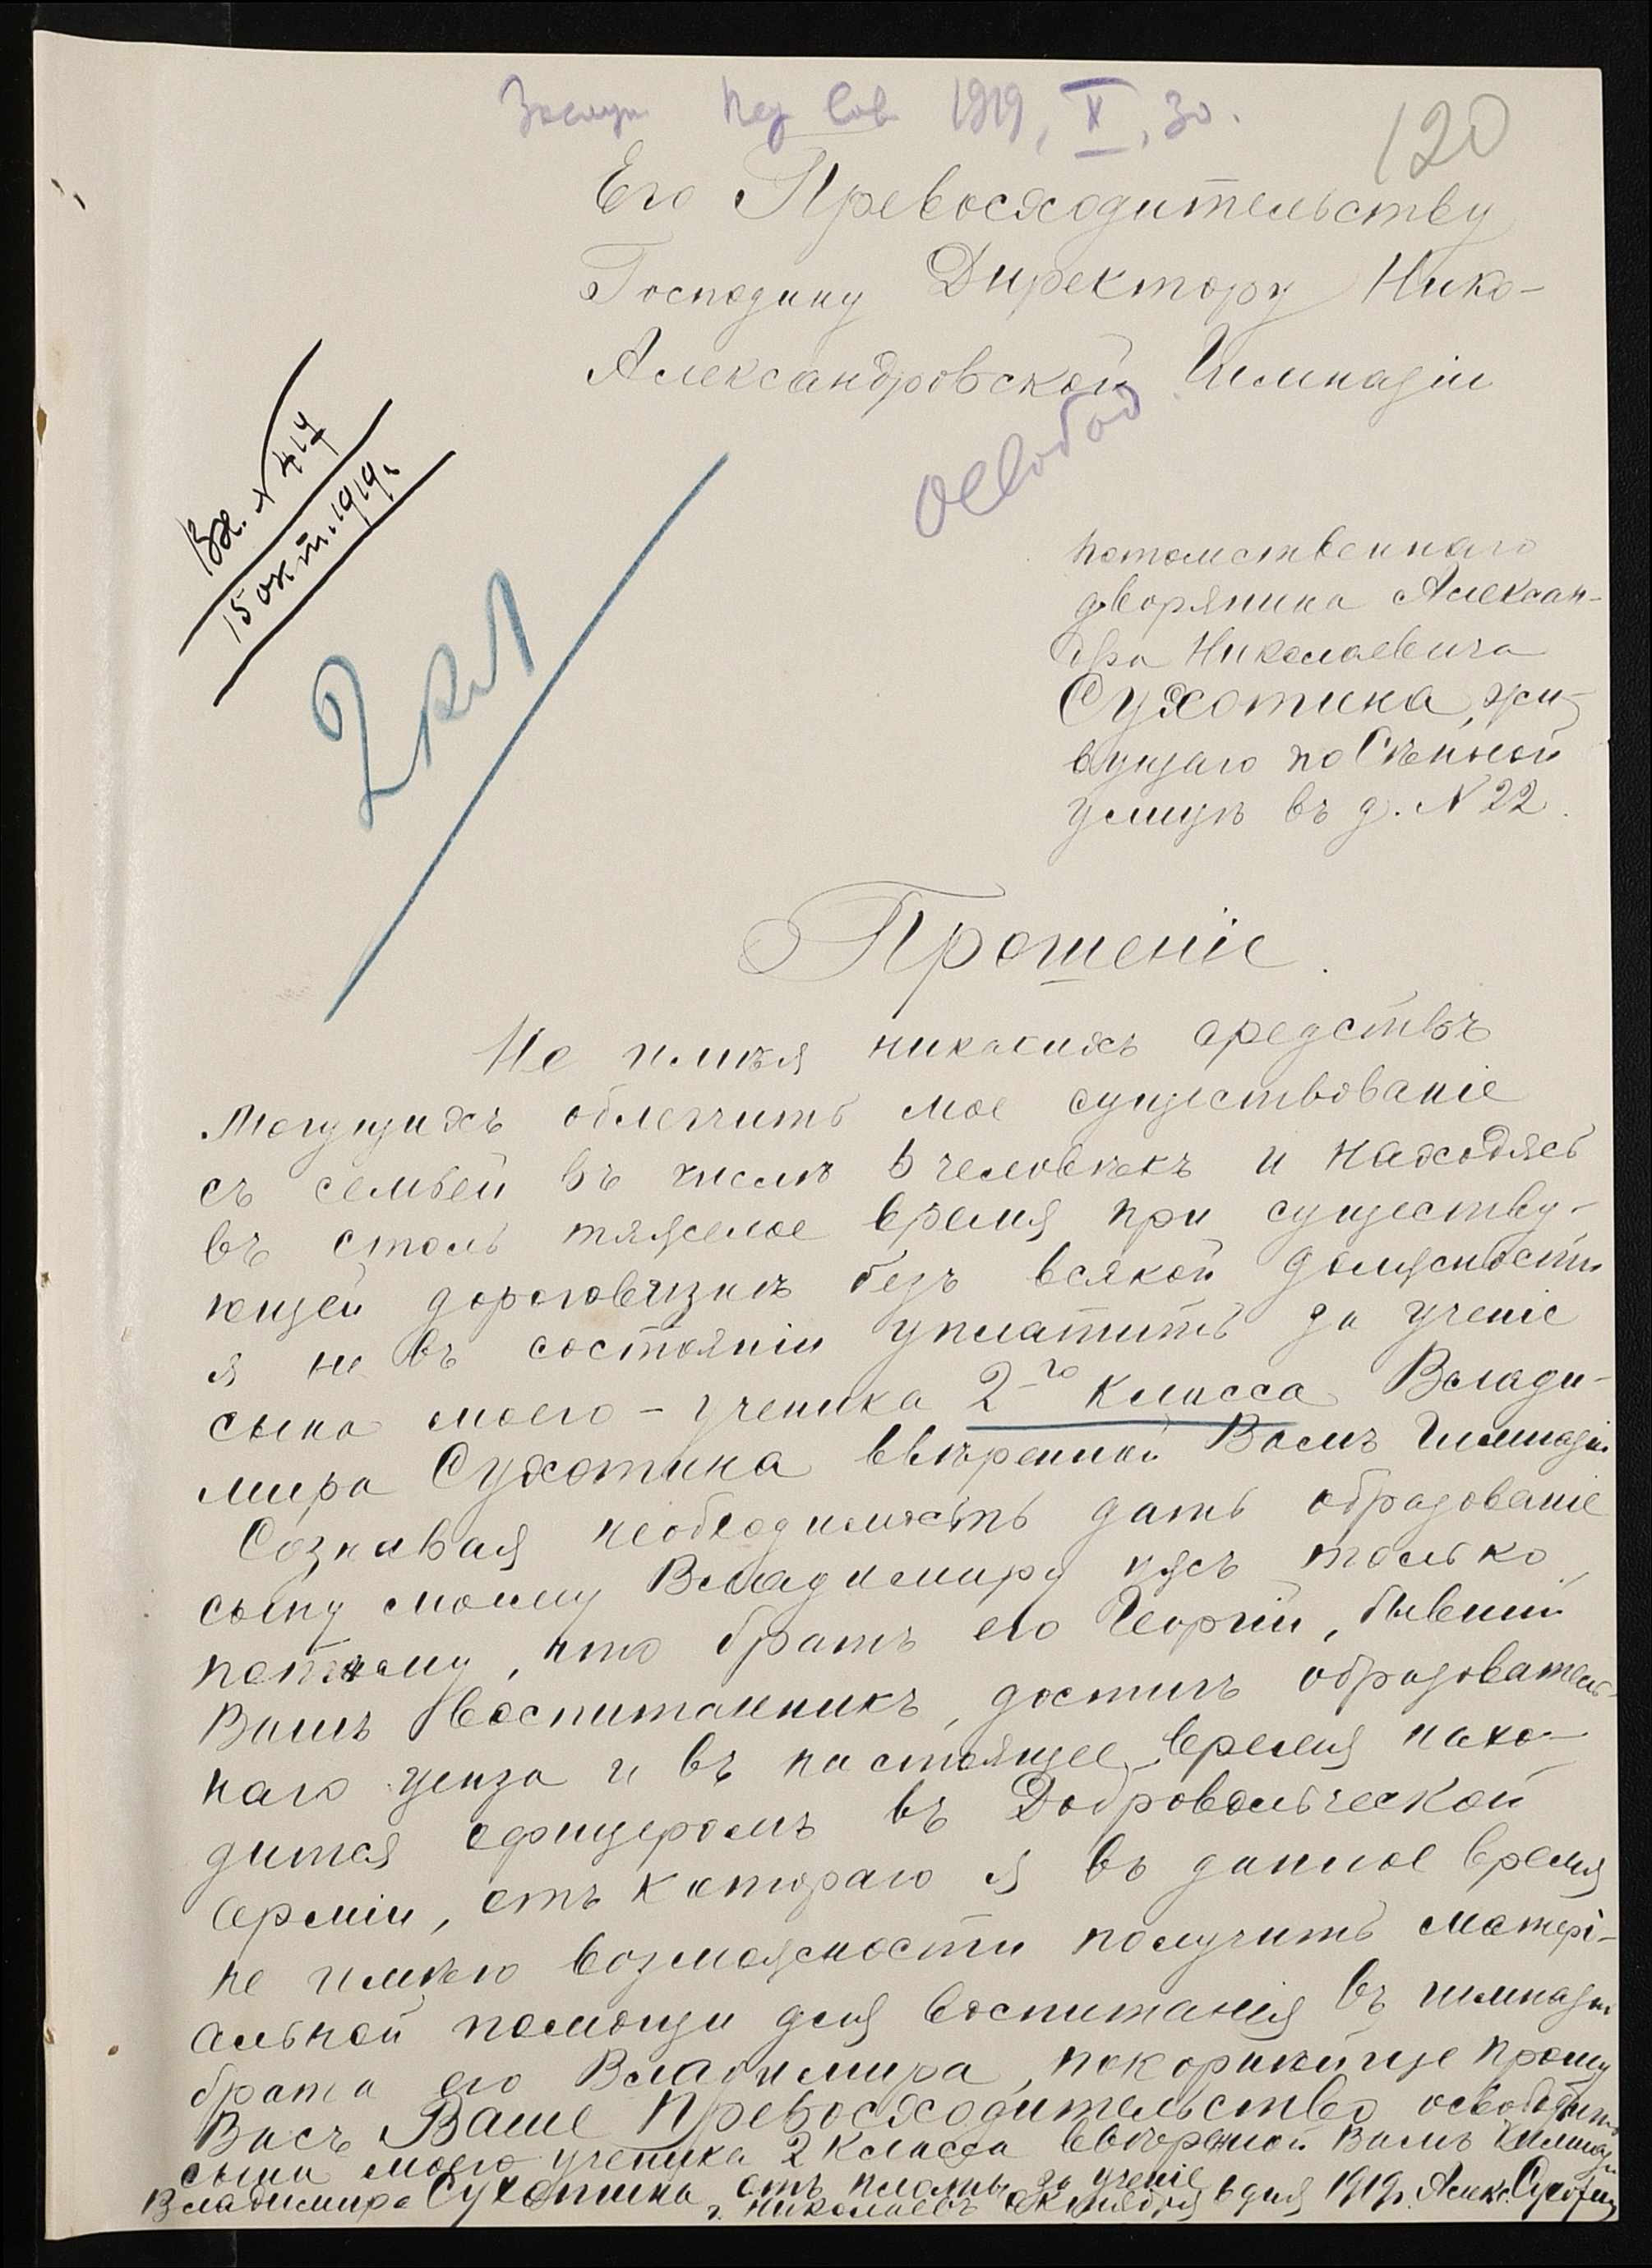 Заслуш. Пед Сов 1919, X, 30.
120
Его Превосходительству
Господину Директору Нико-
Александровской Гимназіи
Освобод
Вх. N 417
15 окт. 1919 г.
2 кл
потомственнаго
дворянина Алексан-
дра Николаевича
Сухотина, жи-
вущаго по Сѣнной
улицѣ въ д. N 22.
Прошеніе.
Не имѣя никакихъ средствъ
могущихъ облегчить мое существованіе
съ семьей въ числѣ 6 человѣкъ и находясь
въ столь тяжелое время при существу-
ющей дороговизнѣ безъ всякой должности
я не въ состояніи уплатить за ученіе
сына моего - ученика 2-го класса Влади-
мира Сухотина ввѣренной Вамъ Гимназіи
Сознавая необходимость дать образованіе
сыну моему Владимиру ужъ только
потому, что братъ его Георгій, бывшій
Вашъ воспитанникъ, достигъ образователь-
наго ценза и въ настоящее время нахо-
дится офицеромъ въ Добровольческой
арміи, отъ котораго я въ данное время
не имѣю возможности получить матері-
альной помощи для воспитанія въ гимназіи
брата его Владимира, покорнѣйше прошу
Васъ Ваше Превосходительство освободить
сына моего ученика 2 класса ввѣренной Вамъ Гимназіи
Владимира Сухотина отъ платы за ученіе
г. Николаевъ октября 6 дня 1919 г. Алекс. Сухотин